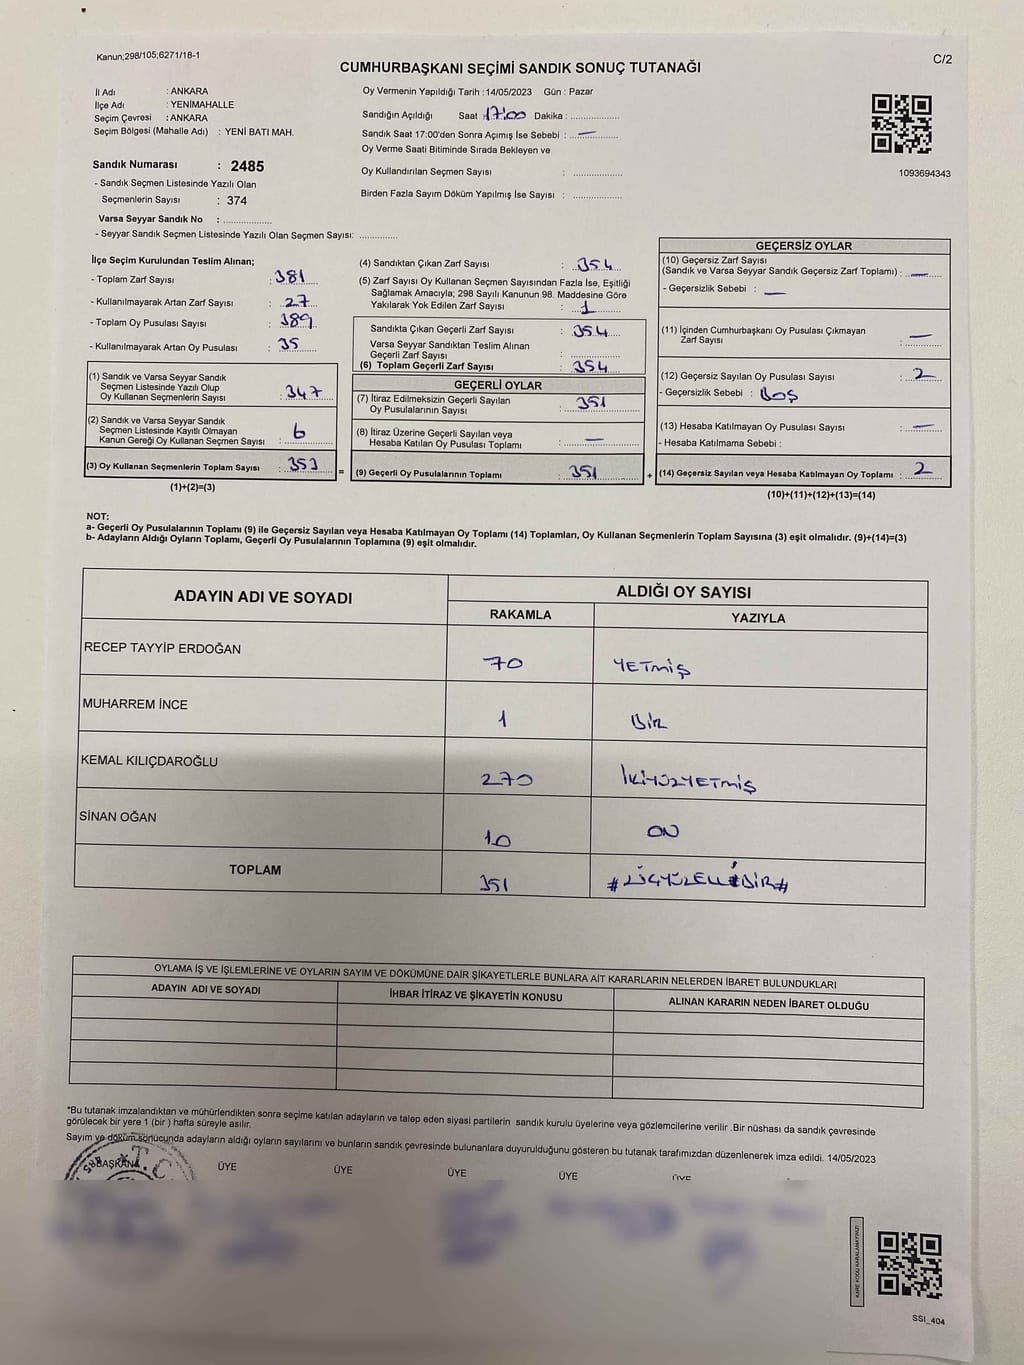 Kanun;298/105;6271/18-1
C/2
CUMHURBAŞKANI SEÇİMİ SANDIK SONUÇ TUTANAĞI
İl Adı : ANKARA
İlçe Adı : YENİMAHALLE
Seçim Çevresi : ANKARA
Seçim Bölgesi (Mahalle Adı) : YENİ BATI MAH.
Sandık Numarası : 2485
- Sandık Seçmen Listesinde Yazılı Olan
Seçmenlerin Sayısı : 374
Varsa Seyyar Sandık No : ....................
- Seyyar Sandık Seçmen Listesinde Yazılı Olan Seçmen Sayısı: ...............
Oy Vermenin Yapıldığı Tarih :14/05/2023 Gün : Pazar
Sandığın Açıldığı Saat :17:00 Dakika : ................
Sandık Saat 17:00'den Sonra Açımış İse Sebebi : —
Oy Verme Saati Bitiminde Sırada Bekleyen ve
Oy Kullandırılan Seçmen Sayısı : ................
Birden Fazla Sayım Döküm Yapılmış İse Sayısı : ................
1093694343
İlçe Seçim Kurulundan Teslim Alınan;
- Toplam Zarf Sayısı : 381
- Kullanılmayarak Artan Zarf Sayısı : 27
- Toplam Oy Pusulası Sayısı : 389
- Kullanılmayarak Artan Oy Pusulası : 35
(1) Sandık ve Varsa Seyyar Sandık
Seçmen Listesinde Yazılı Olup
Oy Kullanan Seçmenlerin Sayısı : 347
(2) Sandık ve Varsa Seyyar Sandık
Seçmen Listesinde Kayıtlı Olmayan
Kanun Gereği Oy Kullanan Seçmen Sayısı : 6
(3) Oy Kullanan Seçmenlerin Toplam Sayısı : 353
(1)+(2)=(3)
=
(4) Sandıktan Çıkan Zarf Sayısı : 354
(5) Zarf Sayısı Oy Kullanan Seçmen Sayısından Fazla İse, Eşitliği
Sağlamak Amacıyla; 298 Sayılı Kanunun 98. Maddesine Göre
Yakılarak Yok Edilen Zarf Sayısı : 1
Sandıkta Çıkan Geçerli Zarf Sayısı : 354
Varsa Seyyar Sandıktan Teslim Alınan
Geçerli Zarf Sayısı : ................
(6) Toplam Geçerli Zarf Sayısı : 354
GEÇERLİ OYLAR
(7) İtiraz Edilmeksizin Geçerli Sayılan
Oy Pusulalarının Sayısı : 351
(8) İtiraz Üzerine Geçerli Sayılan veya
Hesaba Katılan Oy Pusulası Toplamı : —
(9) Geçerli Oy Pusulalarının Toplamı : 351
+
GEÇERSİZ OYLAR
(10) Geçersiz Zarf Sayısı
(Sandık ve Varsa Seyyar Sandık Geçersiz Zarf Toplamı) : —
- Geçersizlik Sebebi : —
(11) İçinden Cumhurbaşkanı Oy Pusulası Çıkmayan
Zarf Sayısı : —
(12) Geçersiz Sayılan Oy Pusulası Sayısı : 2
- Geçersizlik Sebebi : BOŞ
(13) Hesaba Katılmayan Oy Pusulası Sayısı : —
- Hesaba Katılmama Sebebi :
(14) Geçersiz Sayılan veya Hesaba Katılmayan Oy Toplamı : 2
(10)+(11)+(12)+(13)=(14)
NOT:
a- Geçerli Oy Pusulalarının Toplamı (9) ile Geçersiz Sayılan veya Hesaba Katılmayan Oy Toplamı (14) Toplamları, Oy Kullanan Seçmenlerin Toplam Sayısına (3) eşit olmalıdır. (9)+(14)=(3)
b- Adayların Aldığı Oyların Toplamı, Geçerli Oy Pusulalarının Toplamına (9) eşit olmalıdır.
ADAYIN ADI VE SOYADI
ALDIĞI OY SAYISI
RAKAMLA YAZIYLA
RECEP TAYYİP ERDOĞAN 70 YETMİŞ
MUHARREM İNCE 1 BİR
KEMAL KILIÇDAROĞLU 270 İKİYÜZYETMİŞ
SİNAN OĞAN 10 ON
TOPLAM 351 #ÜÇYÜZELLİBİR#
OYLAMA İŞ VE İŞLEMLERİNE VE OYLARIN SAYIM VE DÖKÜMÜNE DAİR ŞİKAYETLERLE BUNLARA AİT KARARLARIN NELERDEN İBARET BULUNDUKLARI
ADAYIN ADI VE SOYADI İHBAR İTİRAZ VE ŞİKAYETİN KONUSU ALINAN KARARIN NEDEN İBARET OLDUĞU
*Bu tutanak imzalandıktan ve mühürlendikten sonra seçime katılan adayların ve talep eden siyasi partilerin sandık kurulu üyelerine veya gözlemcilerine verilir .Bir nüshası da sandık çevresinde
görülecek bir yere 1 (bir ) hafta süreyle asılır.
Sayım ve döküm sonucunda adayların aldığı oyların sayılarını ve bunların sandık çevresinde bulunanlara duyurulduğunu gösteren bu tutanak tarafımızdan düzenlenerek imza edildi. 14/05/2023
BAŞKAN ÜYE ÜYE ÜYE ÜYE ÜYE
T.C
KARE KODU KARALAMAYINIZ!
SSI_404